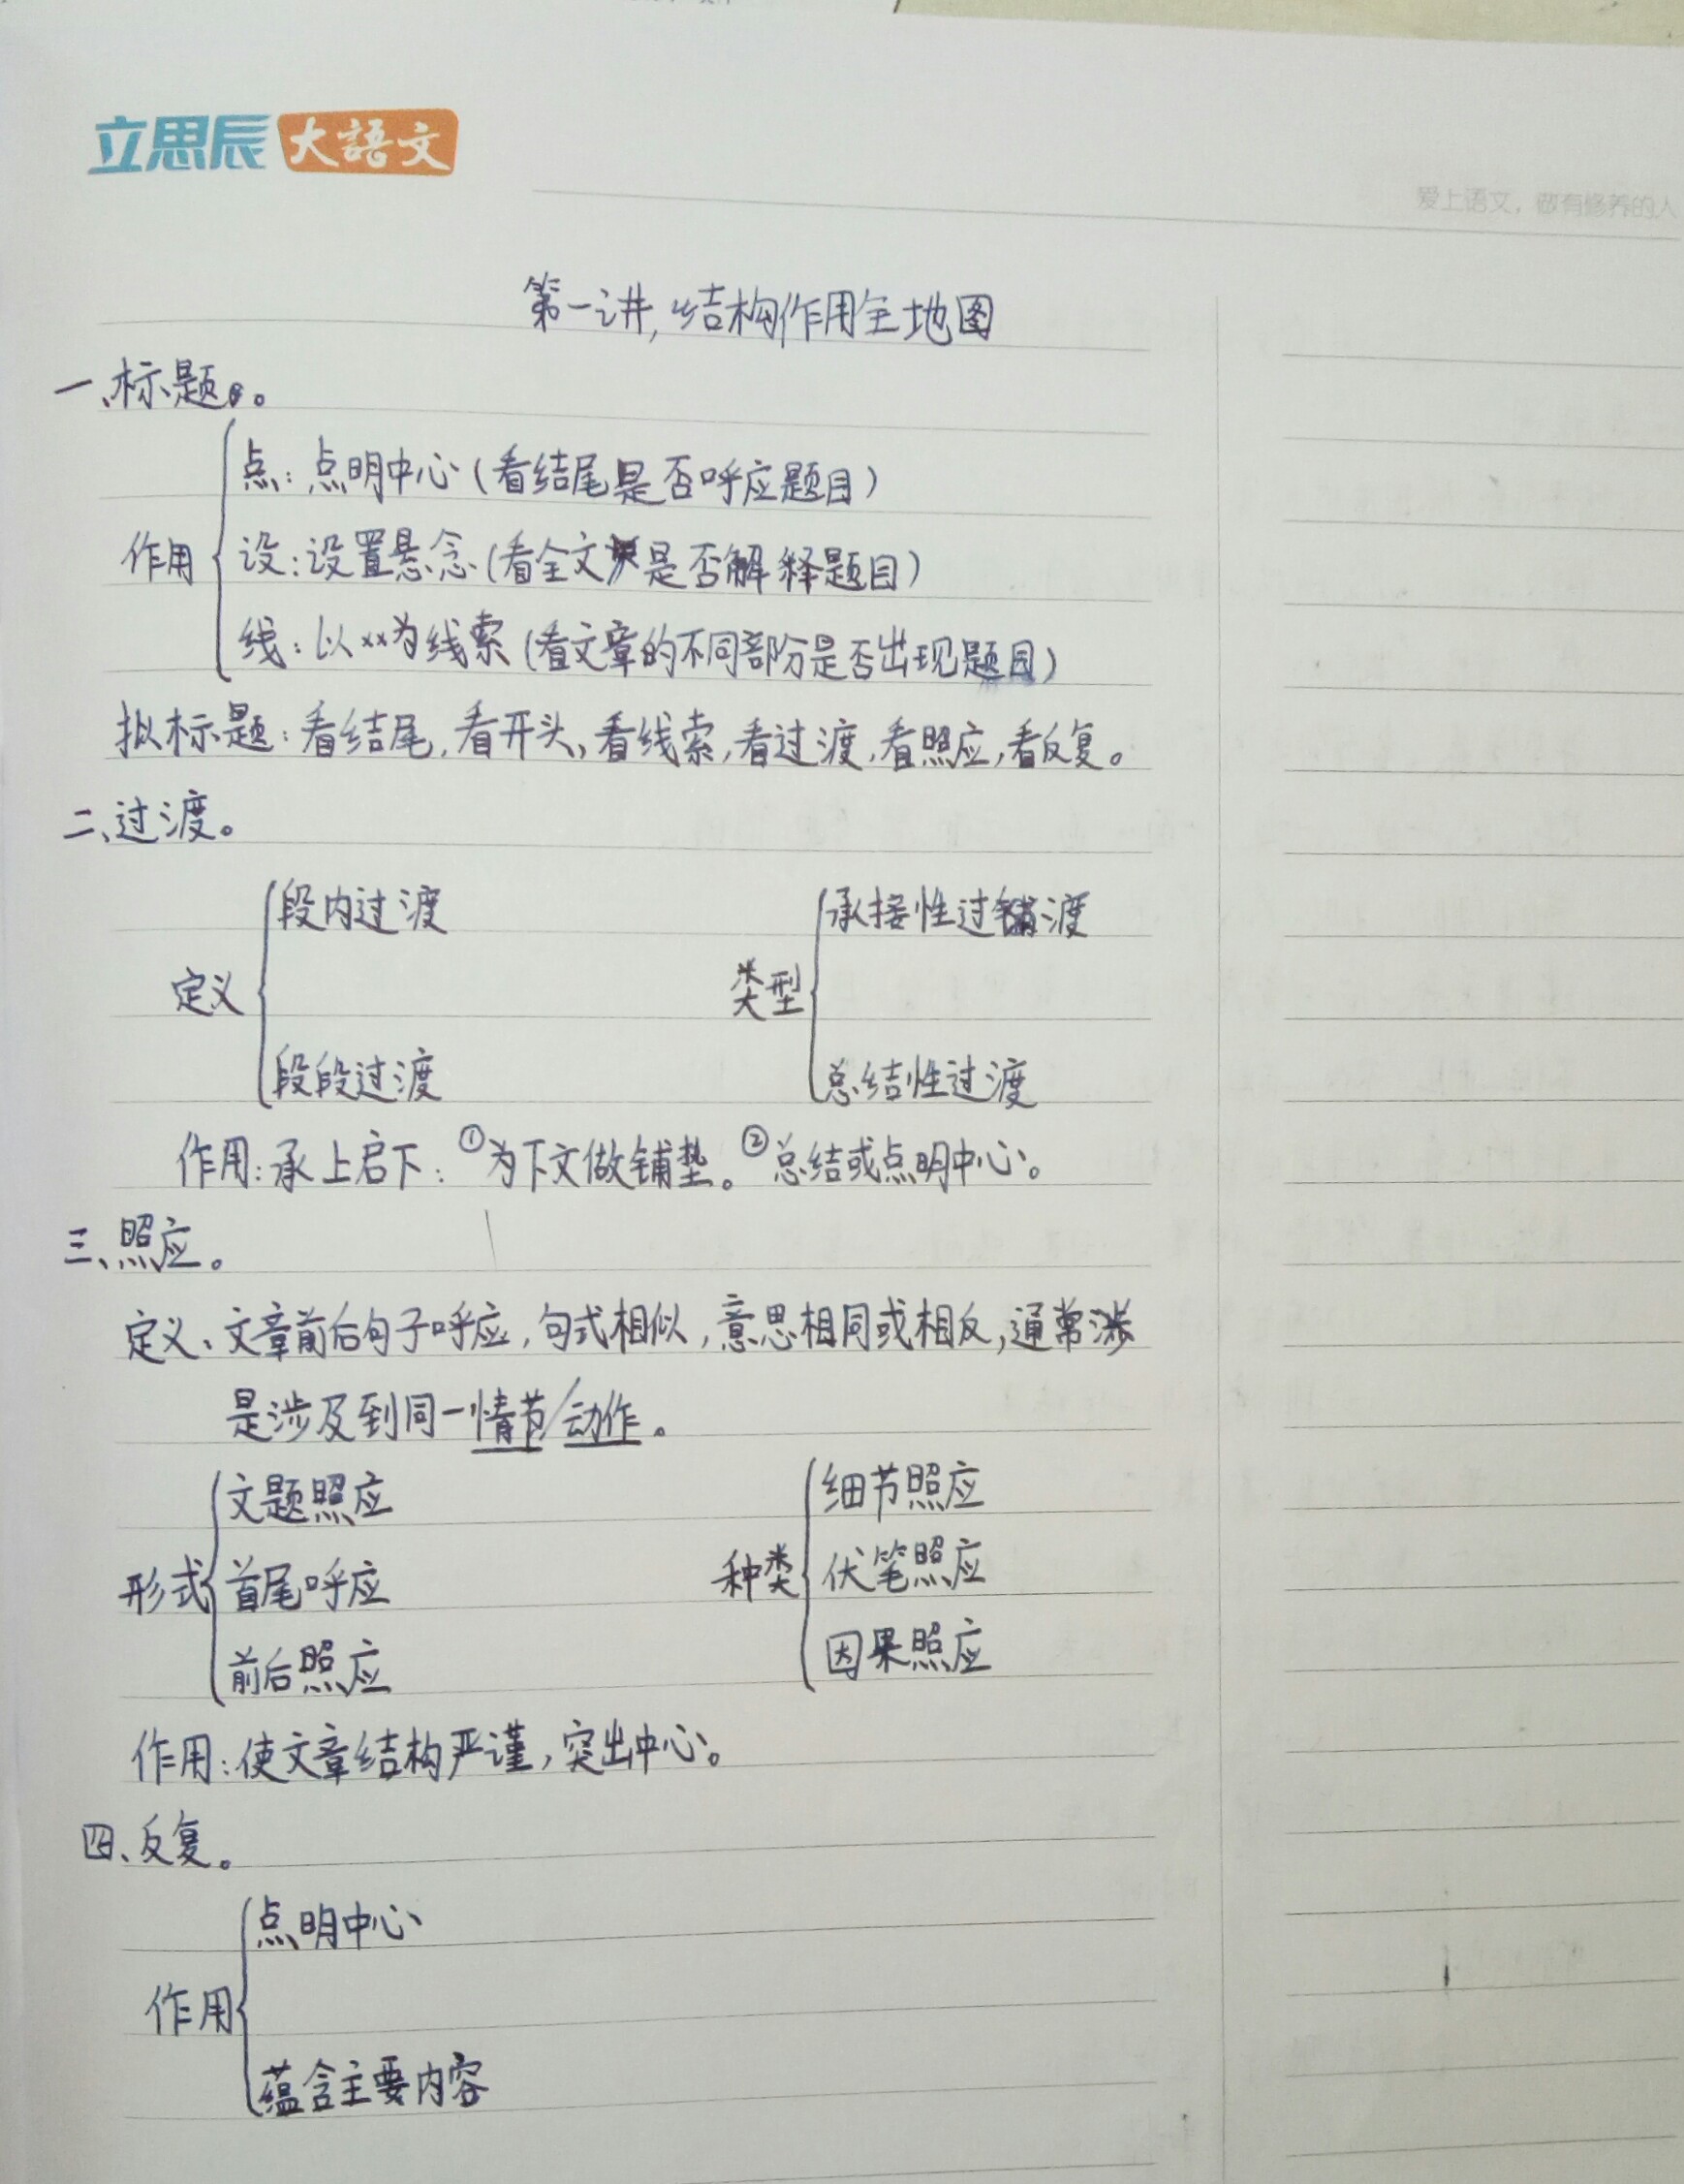 立思辰大語文
爱上语文，做有修养的人
第一讲，结构作用全地图
一、标题。
点：点明中心（看结尾是否呼应题目）
作用
设：设置悬念（看全文是否解释题目）
线：以××为线索（看文章的不同部分是否出现题目）
拟标题：看结尾，看开头、看线索，看过渡，看照应，看反复。
二、过渡。
段内过渡
承接性过渡
定义
类型
段段过渡
总结性过渡
作用：承上启下：①为下文做铺垫。②总结或点明中心。
三、照应。
定义、文章前后句子呼应，句式相似，意思相同或相反，通常
是涉及到同一情节/动作。
文题照应
细节照应
形式
首尾呼应
种类
伏笔照应
前后照应
因果照应
作用：使文章结构严谨，突出中心。
四、反复。
点明中心
作用
蕴含主要内容